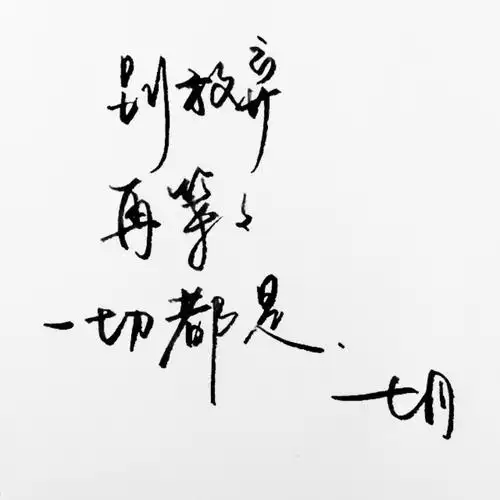 别放弃
再等等
一切都是.
七月